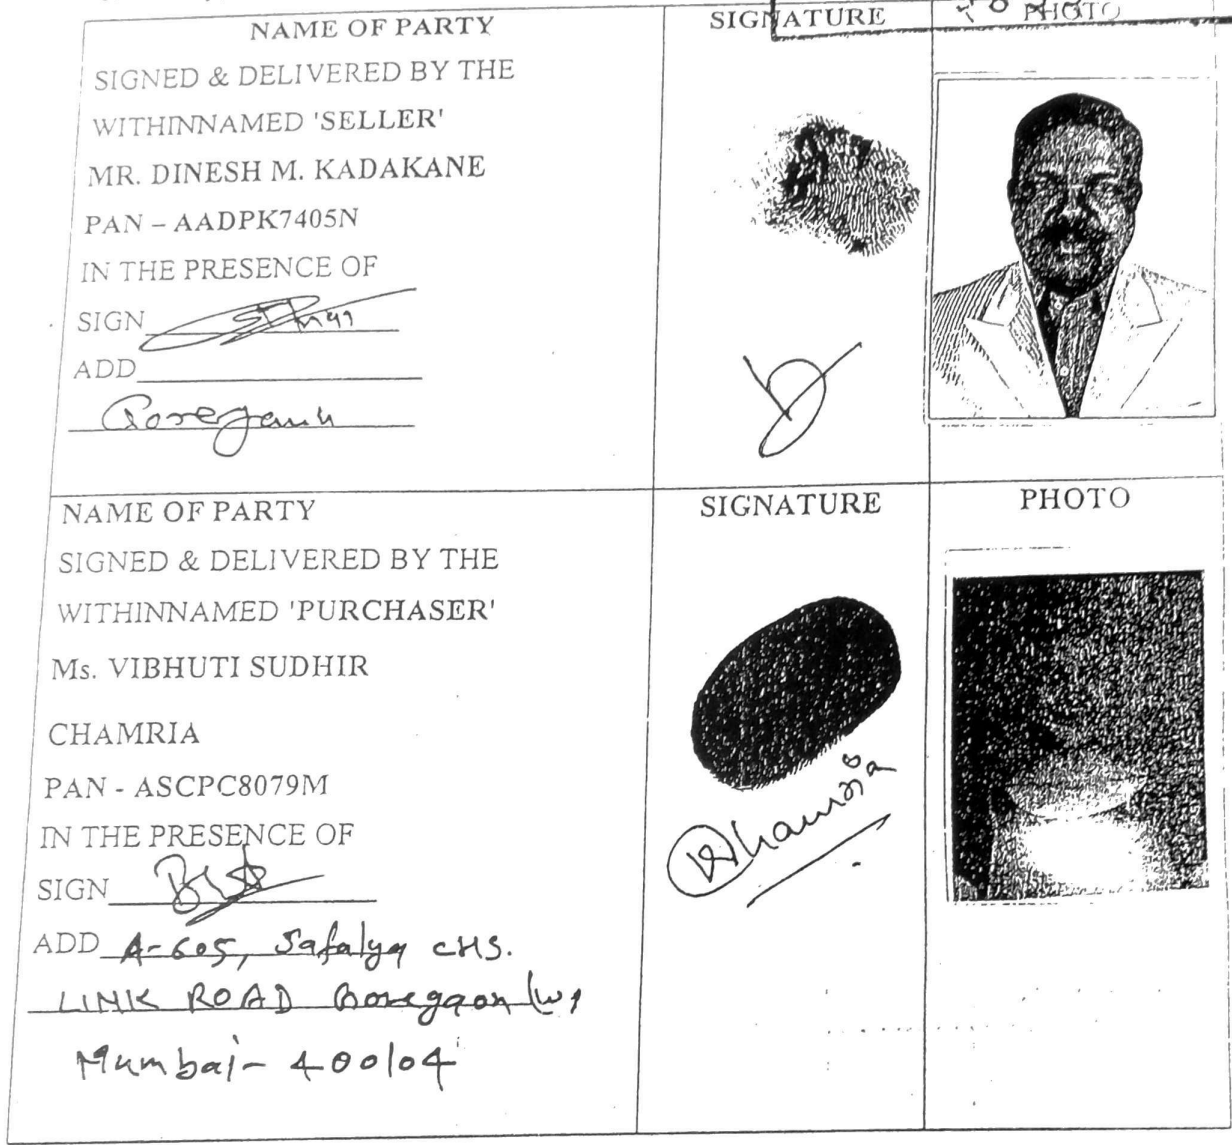 NAME OF PARTY
SIGNATURE
PHOTO
SIGNED & DELIVERED BY THE
WITHINNAMED 'SELLER'
MR. DINESH M. KADAKANE
PAN – AADPK7405N
IN THE PRESENCE OF
SIGN
ADD
Goregaun
NAME OF PARTY
SIGNATURE
PHOTO
SIGNED & DELIVERED BY THE
WITHINNAMED 'PURCHASER'
Ms. VIBHUTI SUDHIR
CHAMRIA
PAN - ASCPC8079M
IN THE PRESENCE OF
SIGN
ADD A-605, Safalya CHS.
LINK ROAD Goregaon (w)
Mumbai- 400104